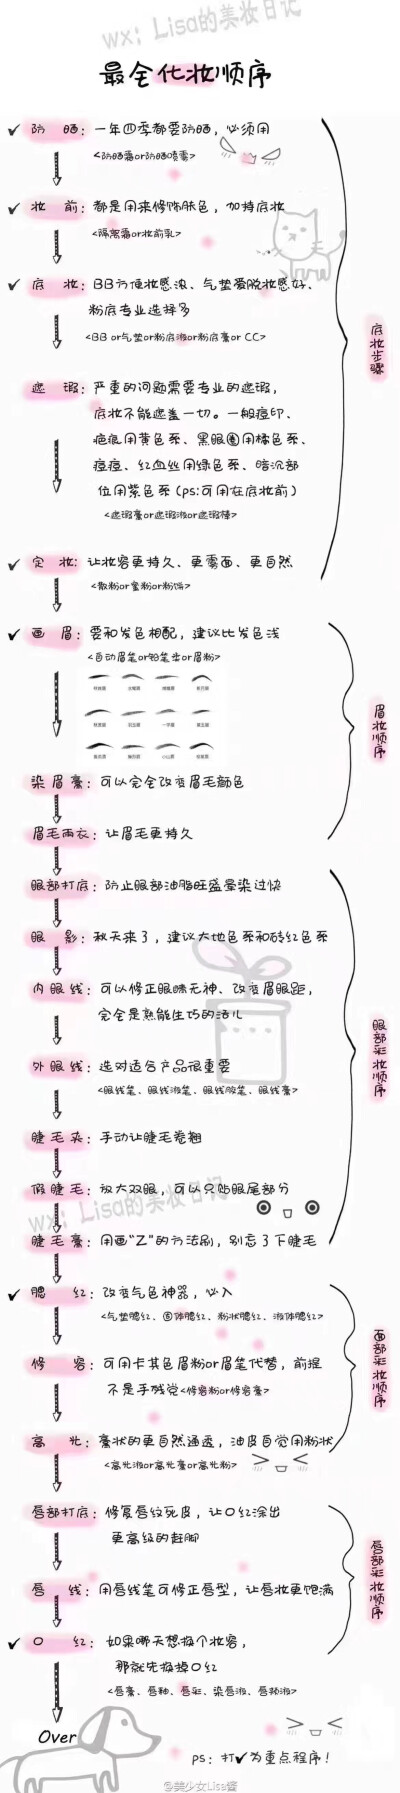 wx: Lisa的美妆日记
最全化妆顺序
防 晒: 一年四季都要防晒, 必须用
<防晒霜or防晒喷雾>
妆 前: 都是用来修饰肤色, 加持底妆
<隔离霜or妆前乳>
底 妆: BB方便妆感浓、气垫爱脱妆感好、
粉底专业选择多
<BB or气垫or粉底液or粉底膏or CC>
遮 瑕: 严重的问题需要专业的遮瑕,
底妆不能遮盖一切。一般痘印、
疤痕用黄色系、黑眼圈用橘色系、
痘痘、红血丝用绿色系、暗沉部
位用紫色系(ps:可用在底妆前)
<遮瑕膏or遮瑕液or遮瑕棒>
定 妆: 让妆容更持久、更雾面、更自然
<散粉or蜜粉or粉饼>
底妆步骤
画 眉: 要和发色相配, 建议比发色浅
<自动眉笔or铅笔or眉粉>
染眉膏: 可以完全改变眉毛颜色
眉毛雨衣: 让眉毛更持久
眉妆顺序
眼部打底: 防止眼部油脂旺盛晕染过快
眼 影: 秋天来了, 建议大地色系和砖红色系
内眼线: 可以修正眼睛无神、改变眉眼距,
完全是熟能生巧的活儿
外眼线: 选对适合产品很重要
<眼线笔、眼线液笔、眼线胶笔、眼线膏>
睫毛夹: 手动让睫毛卷翘
假睫毛: 放大双眼, 可以只贴眼尾部分
wx: Lisa的美妆日记
睫毛膏: 用画“Z”的方法刷, 别忘了下睫毛
眼部彩妆顺序
腮 红: 改变气色神器, 必入
<气垫腮红、固体腮红、粉状腮红、液体腮红>
修 容: 可用卡其色眉粉or眉笔代替, 前提
不是手残党<修容粉or修容膏>
高 光: 膏状的更自然通透, 油皮自觉用粉状
<高光液or高光膏or高光粉>
面部彩妆顺序
唇部打底: 修复唇纹死皮, 让口红涂出
更高级的赶脚
唇 线: 用唇线笔可修正唇型, 让唇妆更饱满
口 红: 如果哪天想换个妆容,
那就先换掉口红
<唇膏、唇釉、唇彩、染唇液、唇颊液>
唇部彩妆顺序
Over
ps: 打✔为重点程序!
@美少女Lisa酱